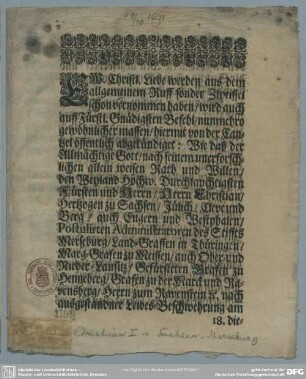 EW. Christl. Liebe werden aus dem
allgemeinem Ruff sonder Zweiffel
schon vernommen haben / wird auch
auff Fürstl. Gnädigsten Befehl / nunmehro
gewöhnlicher massen / hiermit von der Can-
tzel öffentlich abgekündiget: Wie daß der
Allmächtige Gott / nach seinem unerforsch-
lichen allein weisen Rath und Willen /
den Weyland Hochw. Durchlauchtigsten
Fürsten und Herrn / Herrn Christian /
Hertzogen zu Sachsen / Jülich / Cleve und
Berg / auch Engern und Westphalen /
Postulirten Administratoren des Stiffts
Merseburg / Land-Graffen in Thüringen /
Marg-Grafen zu Meissen / auch Ober- und
Nieder-Lausitz / Gefürsteten Grafen zu
Henneberg / Grafen zu der Marck und Ra-
vensberg / Herrn zum Ravenstein ꝛc. nach
ausgestandner Leibes-Beschwehrung am
18. die-
Christian I v. Sachsen-Merseburg